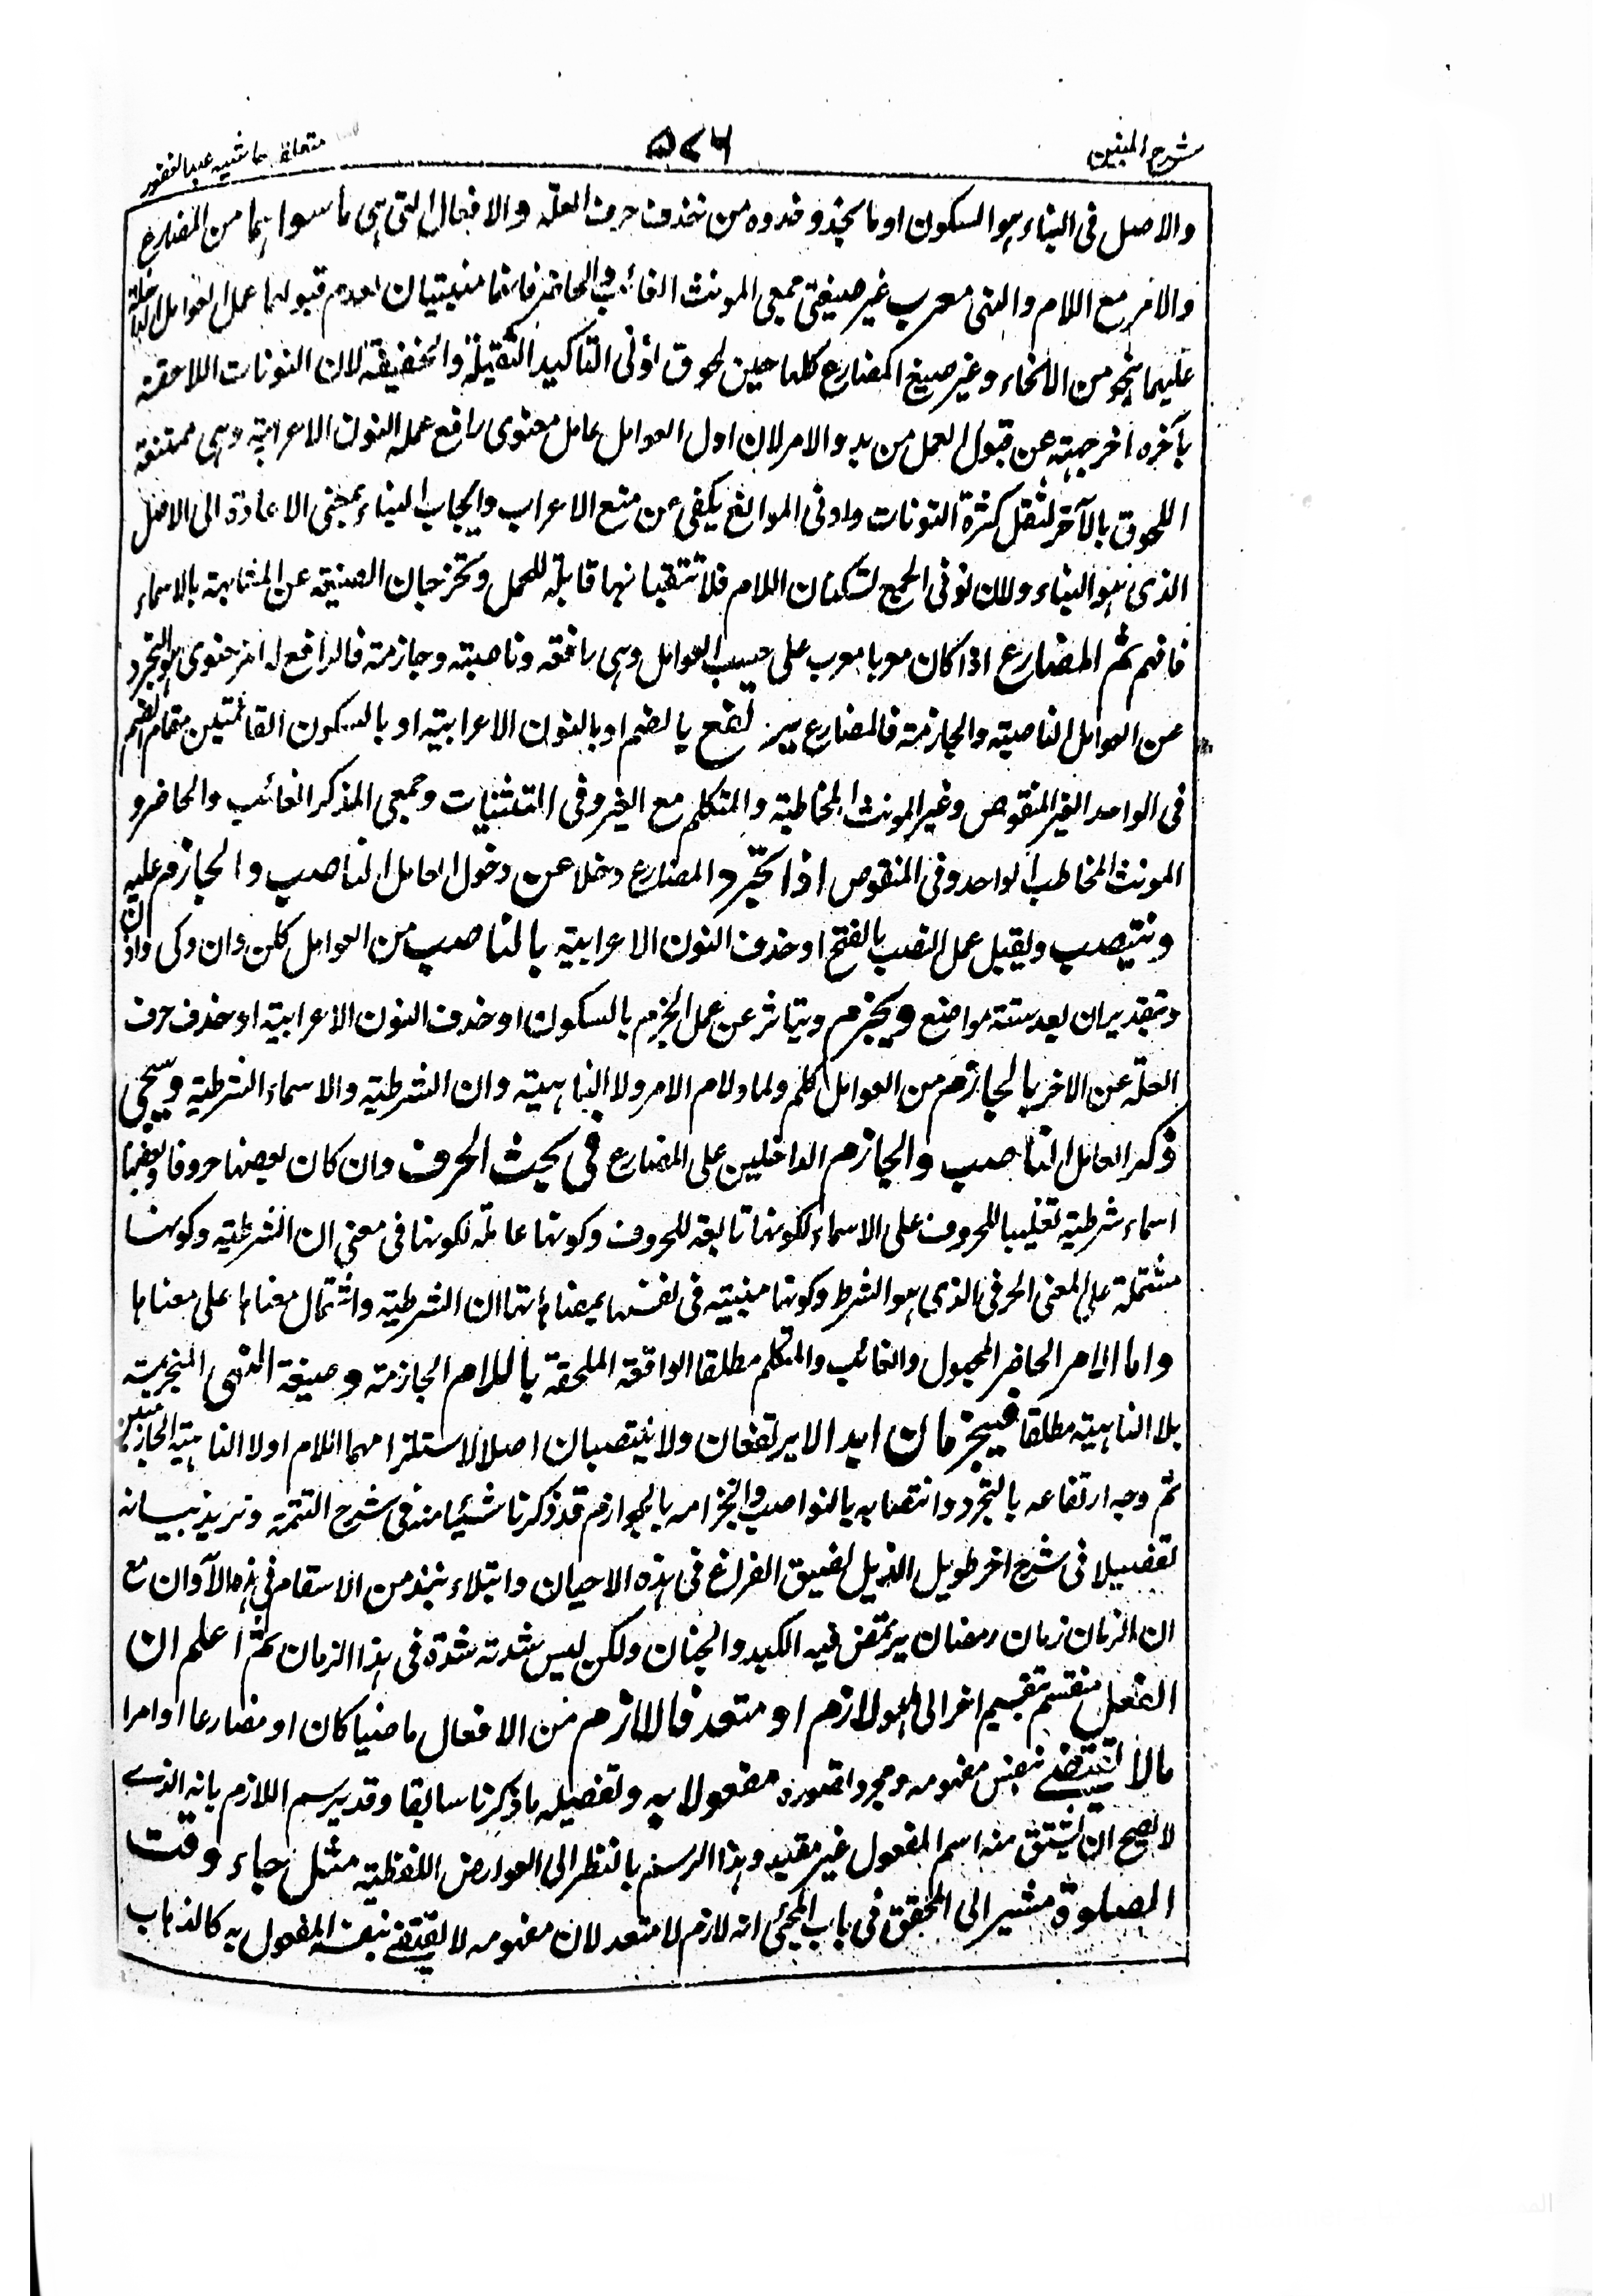 شرح المبنين ٥٧٦ متعلقه حاشيه عبد الغفور
والاصل فى البناء هو السكون او ما يحذو حذوه من حذف حرف العلة والافعال التى هى ما سواهما من المضارع
والامر مع اللام والنهى معرب غير صيغتى جمعى المونث الغائب والحاضر فانهما مبنيتان لعدم قبولهما عمل العوامل الداخلة
عليهما بنحو من الانحاء وغير صيغ المضارع كلها حين لحوق نونى التاكيد الثقيلة والخفيفة لان النونات اللاحقة
بآخره اخرجته عن قبول العمل من بدو الامر لان اول العوامل عامل معنوى رافع عمله النون الاعرابية وهى ممتنعة
اللحوق بالآخر لثقل كثرة النونات وادنى الموانع يكفى عن منع الاعراب وايجاب البناء بمعنى الاعادة الى الاصل
الذى هو البناء ولان نونى الجمع تسكنان اللام فلا تبقيانها قابلة للعمل وتخرجان الصيغة عن المشابهة بالاسماء
فافهم ثم المضارع اذا كان معربا معرب على حسب العوامل وهى رافعة وناصبة وجازمة فالرافع له امر معنوى هو التجرد
عن العوامل الناصبة والجازمة فالمضارع يرتفع بالضم او بالنون الاعرابية او بالسكون القائمتين مقام الضم
فى الواحد الغير المنقوص وغير المونث المخاطبة والمتكلم مع الغير وفى التثنيات وجمعى المذكر الغائب والحاضر و
المونث المخاطب الواحد وفى المنقوص اذا تجرد المضارع وخلا عن دخول العامل الناصب والجازم عليه
وينتصب ويقبل عمل النصب بالفتح او حذف النون الاعرابية بالناصب من العوامل كلن وان وكى واذن
وبتقدير ان بعد ستة مواضع وينجزم ويتاثر عن عمل الجزم بالسكون او حذف النون الاعرابية او حذف حرف
العلة عن الاخر بالجازم من العوامل كلم ولما ولام الامر ولا الناهية وان الشرطية والاسماء الشرطية وسيجى
ذكر العامل الناصب والجازم الداخلين على المضارع فى بحث الحرف وان كان بعضها حروفا وبعضها
اسماء شرطية تغليبا للحروف على الاسماء لكونها تابعة للحروف وكونها عاملة لكونها فى معنى ان الشرطية وكونها
مشتملة على المعنى الحرفى الذى هو الشرط وكونها مبنية فى نفسها بمعناها ان الشرطية واشتمال معناها على معناها
واما الامر الحاضر المجهول والغائب والمتكلم مطلقا الواقعة الملحقة باللام الجازمة وصيغة النهى المنجزمة
بلا الناهية مطلقا فينجزمان ابدا لا يرتفعان ولا ينتصبان اصلا لاستلزامهما اللام او لا الناهية الجازمتين
ثم وجه ارتفاعه بالتجرد وانتصابه بالنواصب وانجزامه بالجوازم قد ذكرنا شيئا منه فى شرح التتمة ونريد بيانه
تفصيلا فى شرح اخر طويل الذيل لضيق الفراغ فى هذه الاحيان وابتلاء بنبذ من الاسقام فى هذه الآوان مع
ان الزمان زمان رمضان يرتمض فيه الكبد والجنان ولكن ليس شدته شدة فى هذا الزمان ثم اعلم ان
الفعل منقسم تقسيم اخر الى هو لازم او متعد فاللازم من الافعال ماضيا كان او مضارعا او امرا
مالا يقتضى بنفس مفهومه ومجرد تصوره مفعولا به وتفصيله ما ذكرنا سابقا وقد يرسم اللازم بانه الذى
لا يصح ان يشتق منه اسم المفعول غير مقيد وهذا الرسم بالنظر الى العوارض اللفظية مثل جاء وقت
الصلوة مشير الى المحقق فى باب المجئ انه لازم لا متعد لان مفهومه لا يقتضى بنفسه المفعول به كالذهاب